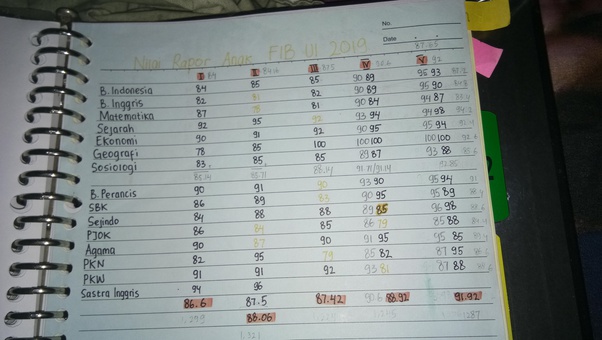 No.
Date
87.65
Nilai Rapor Angk FIB UI 2019
I II III IV V 92
B. Indonesia 84 85 85 90 89 95 93
B. Inggris 82 81 82 90 89 95 90
Matematika 87 81 90 84 94 87
Sejarah 92 95 92 93 94 94 98
Ekonomi 90 91 92 90 95 95 94
Geografi 78 85 100 100 100 100 100
Sosiologi 83 85 85 89 87 93 88
88.14 91.71/91.14 92.85
B. Perancis 90 91 90 93 90 95 94
SBK 86 89 83 90 95 95 89
Sejindo 84 88 88 89 85 96 98
PJOK 86 84 85 86 79 85 88
Agama 90 87 90 91 95 95 85
PKN 82 95 79 85 82 87 95
PKW 91 91 92 93 81 87 88
Sastra Inggris 94 96
86.6 87.5 87.42 90.6 88.92 91.92
88.06 1287
1.321